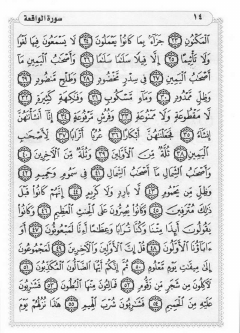 ١٤ سورة الواقعة
ٱلْمَكْنُونِ ٢٣ جَزَآءًۢ بِمَا كَانُوا۟ يَعْمَلُونَ ٢٤ لَا يَسْمَعُونَ فِيهَا لَغْوًا
وَلَا تَأْثِيمًا ٢٥ إِلَّا قِيلًا سَلَـٰمًا سَلَـٰمًا ٢٦ وَأَصْحَـٰبُ ٱلْيَمِينِ مَآ
أَصْحَـٰبُ ٱلْيَمِينِ ٢٧ فِى سِدْرٍ مَّخْضُودٍ ٢٨ وَطَلْحٍ مَّنضُودٍ ٢٩
وَظِلٍّ مَّمْدُودٍ ٣٠ وَمَآءٍ مَّسْكُوبٍ ٣١ وَفَـٰكِهَةٍ كَثِيرَةٍ ٣٢
لَّا مَقْطُوعَةٍ وَلَا مَمْنُوعَةٍ ٣٣ وَفُرُشٍ مَّرْفُوعَةٍ ٣٤ إِنَّآ أَنشَأْنَـٰهُنَّ
إِنشَآءً ٣٥ فَجَعَلْنَـٰهُنَّ أَبْكَارًا ٣٦ عُرُبًا أَتْرَابًا ٣٧ لِّأَصْحَـٰبِ
ٱلْيَمِينِ ٣٨ ثُلَّةٌ مِّنَ ٱلْأَوَّلِينَ ٣٩ وَثُلَّةٌ مِّنَ ٱلْـَٔاخِرِينَ ٤٠
وَأَصْحَـٰبُ ٱلشِّمَالِ مَآ أَصْحَـٰبُ ٱلشِّمَالِ ٤١ فِى سَمُومٍ وَحَمِيمٍ ٤٢
وَظِلٍّ مِّن يَحْمُومٍ ٤٣ لَّا بَارِدٍ وَلَا كَرِيمٍ ٤٤ إِنَّهُمْ كَانُوا۟ قَبْلَ
ذَٰلِكَ مُتْرَفِينَ ٤٥ وَكَانُوا۟ يُصِرُّونَ عَلَى ٱلْحِنثِ ٱلْعَظِيمِ ٤٦ وَكَانُوا۟
يَقُولُونَ أَئِذَا مِتْنَا وَكُنَّا تُرَابًا وَعِظَـٰمًا أَءِنَّا لَمَبْعُوثُونَ ٤٧ أَوَ
ءَابَآؤُنَا ٱلْأَوَّلُونَ ٤٨ قُلْ إِنَّ ٱلْأَوَّلِينَ وَٱلْـَٔاخِرِينَ ٤٩ لَمَجْمُوعُونَ
إِلَىٰ مِيقَـٰتِ يَوْمٍ مَّعْلُومٍ ٥٠ ثُمَّ إِنَّكُمْ أَيُّهَا ٱلضَّآلُّونَ ٱلْمُكَذِّبُونَ ٥١
لَـَٔاكِلُونَ مِن شَجَرٍ مِّن زَقُّومٍ ٥٢ فَمَالِـُٔونَ مِنْهَا ٱلْبُطُونَ ٥٣ فَشَـٰرِبُونَ
عَلَيْهِ مِنَ ٱلْحَمِيمِ ٥٤ فَشَـٰرِبُونَ شُرْبَ ٱلْهِيمِ ٥٥ هَـٰذَا نُزُلُهُمْ يَوْمَ